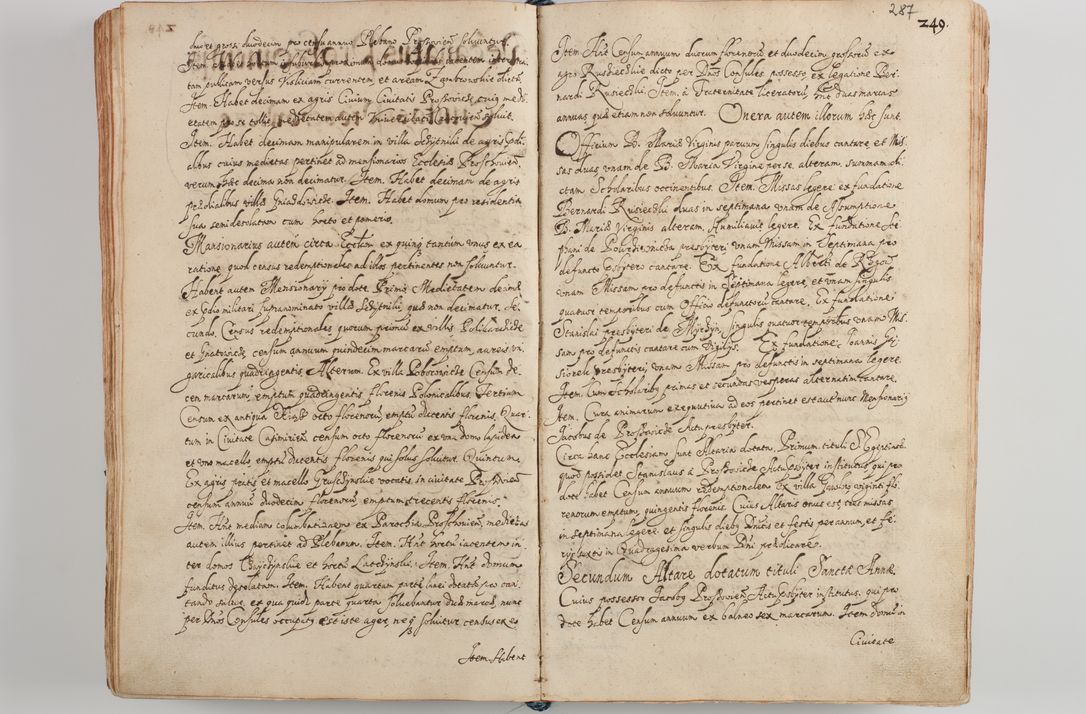 duo et grossi duodecim pro censu annuo Plebano Prossovien solvuntur.
Item
tam publicam versus Visliciam currentem, et aream Zambronskie dictam
Item. Habet decimam ex agris Civium Civitatis Prossovicen, cuius medi
etatem per se tollit, medietatem autem
Item. Habet decimam manipularem in villa Schÿtniki de agris Prædi
alibus cuius medietas pertinet ad mensionarios Ecclesiæ Prossovien,
verum hæc decima non decimatur. Item. Habet decimam de agris
prædialibus villæ Gniadovicæ. Item. Habet domum pro residentia
sua semidesolatam cum horto et pomerio.
Mansionarius autem circa Ecclam ex quinq tantum unus ex ea
ratione, quod census redemptionales ad illos pertinentes non solvuntur.
Habent autem Mensionarij pro dote. Primo. Medietatem decimæ
ex prædio militari supranominato villæ Schÿtniki, quæ non decimatur. Se,
cundo. Census redemptionales quorum primus ex villis
et Gnatovicæ censum annuum quindecim marcarum emptum, aureis un,
garicalibus quadringentis. Alterum. Ex villa Poborovicæ Censum de,
cem marcarum, emptum quadringentis florenis Polonicalibus. Tertium
Censum ex antiqua octo florenoru, emptu ducentis florenis. Quar
tum in Civitate Casimirien censum octo florenoru ex una domo lapidea
et uno macello, emptu ducentis florenis qui solus solvitur. Quintum.
Ex agris pratis et macello vocatis, in civitate Prossovien
censum annuu duodecim florenoru, emptum trecentis florenis.
Item. Hñt mediam columbationem ex Parochia Prossovien, medietas
autem illius pertinet ad Plebanum. Item. Hñt hortu iacentem in,
ter domos et hortu Item. Hñt domum
funditus desolatam. Item. Habent quartam parte lanei dotatæ pro can,
tando salve, ex qua quidē parte quarta solvebantur duæ marcæ, nunc
per Dños Consules occupatq est iste ager, neq solvitur census ex eo
Item Habent
287
249.
Item Hñt Censum annuum duorum florenoru et duodecim grossoru ex
agro Rusieckie dicto per Dños Consules possesso, ex legatione Ber,
nardi Rusiecki. Item. à Fraternitate literatoru, hñt duas marcas
annuas, quæ etiam non solvuntur. Onera autem illorum hæc sunt.
Officium B. Mariæ Virginis parvum singulis diebus cantare, et Mis
sas duas, unam de B. Maria Virgine per se, alteram, summam di,
ctam Scholaribus occinentibus. Item. Missas legere ex fundatione
Bernardi Rusiecki duas in septimana unam de Assumptione
B. Mariæ Virginis alteram, Humiliavit legere. Ex fundatione Ste,
phani de presbyteri unam Missam in Septimana pro
defuncto Præsbytero cantare. Ex fundatione Alberti de
unam Missam pro defunctis in Septimana legere, et unam singulis
quatuor temporibus cum Officio defunctoru cantare. Ex fundatione
Stanislai presbyteri de singulis quatuor temporibus unam Mis.
sam pro defunctis cantare cum Vigilijs. Ex fundatione Joannis
presbyteri, unam Missam pro defunctis in septimana legere.
Item. Cum Scholarib9 primas et secundas vesperas alternatim cantare.
Item. Cura animarum exequutiva ad eos pertinet est aut nunc Mensionarij
Jacobus de Prossovicæ Actu presbyter.
Circa hanc Ecclesiam sunt Altaria dotata. Primum tituli S Egentiani
quod possidet Stanislaus à Prossovicæ Actupsbyter institutus, qui pro
dote habet Censum annuum redemptionalem Ex villa viginti flo
renorum emptum, quingentis florenis. Cuius Altaris onus est, tres missas
in septimana legere, et singulis dieb9 Dñicis et festis per annum, et fe,
rijs sextis in Quadragesima verbum Dñi prædicare.
Secundum Altare dotatum tituli Sanctæ Annæ.
Cuius possessor Jacob9 Prossovien Actupsbyter institutus, qui pro
dote habet Censum annuum ex balneo sex marcarum. Item domu in
Civitate